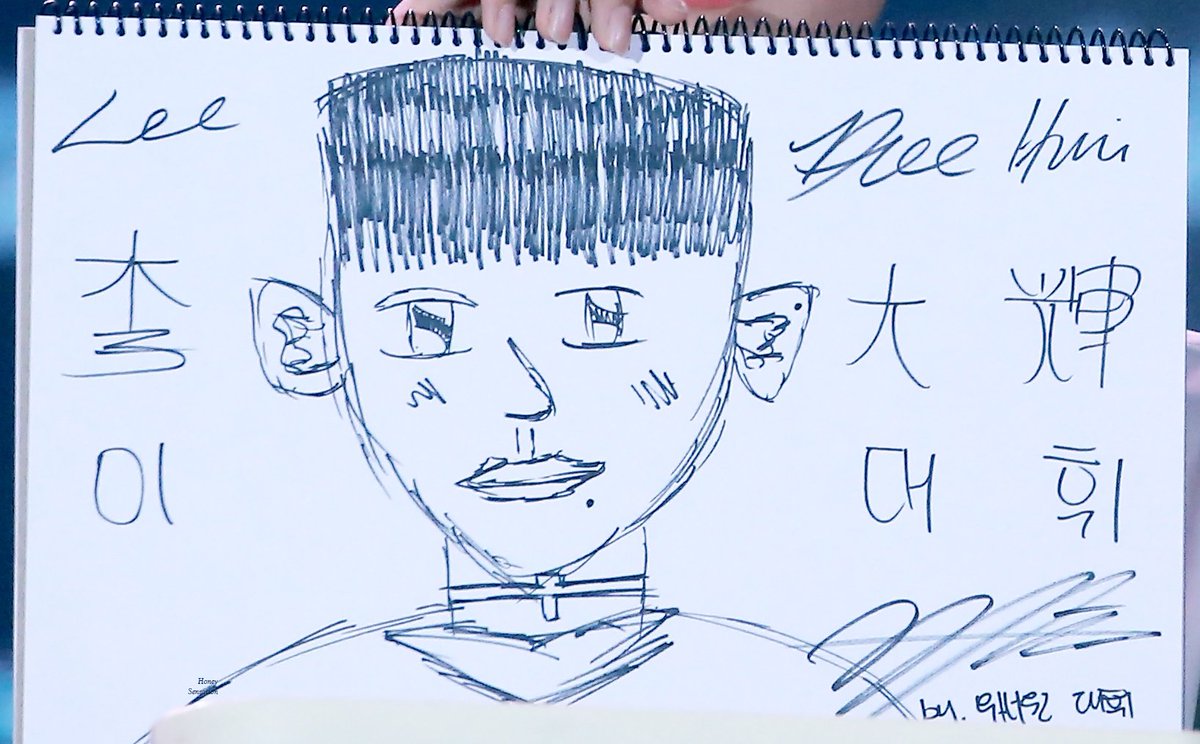 Lee Dae Hwi
李 大 輝
이 대 휘
by. 워너원 대휘
Honey
Sensation